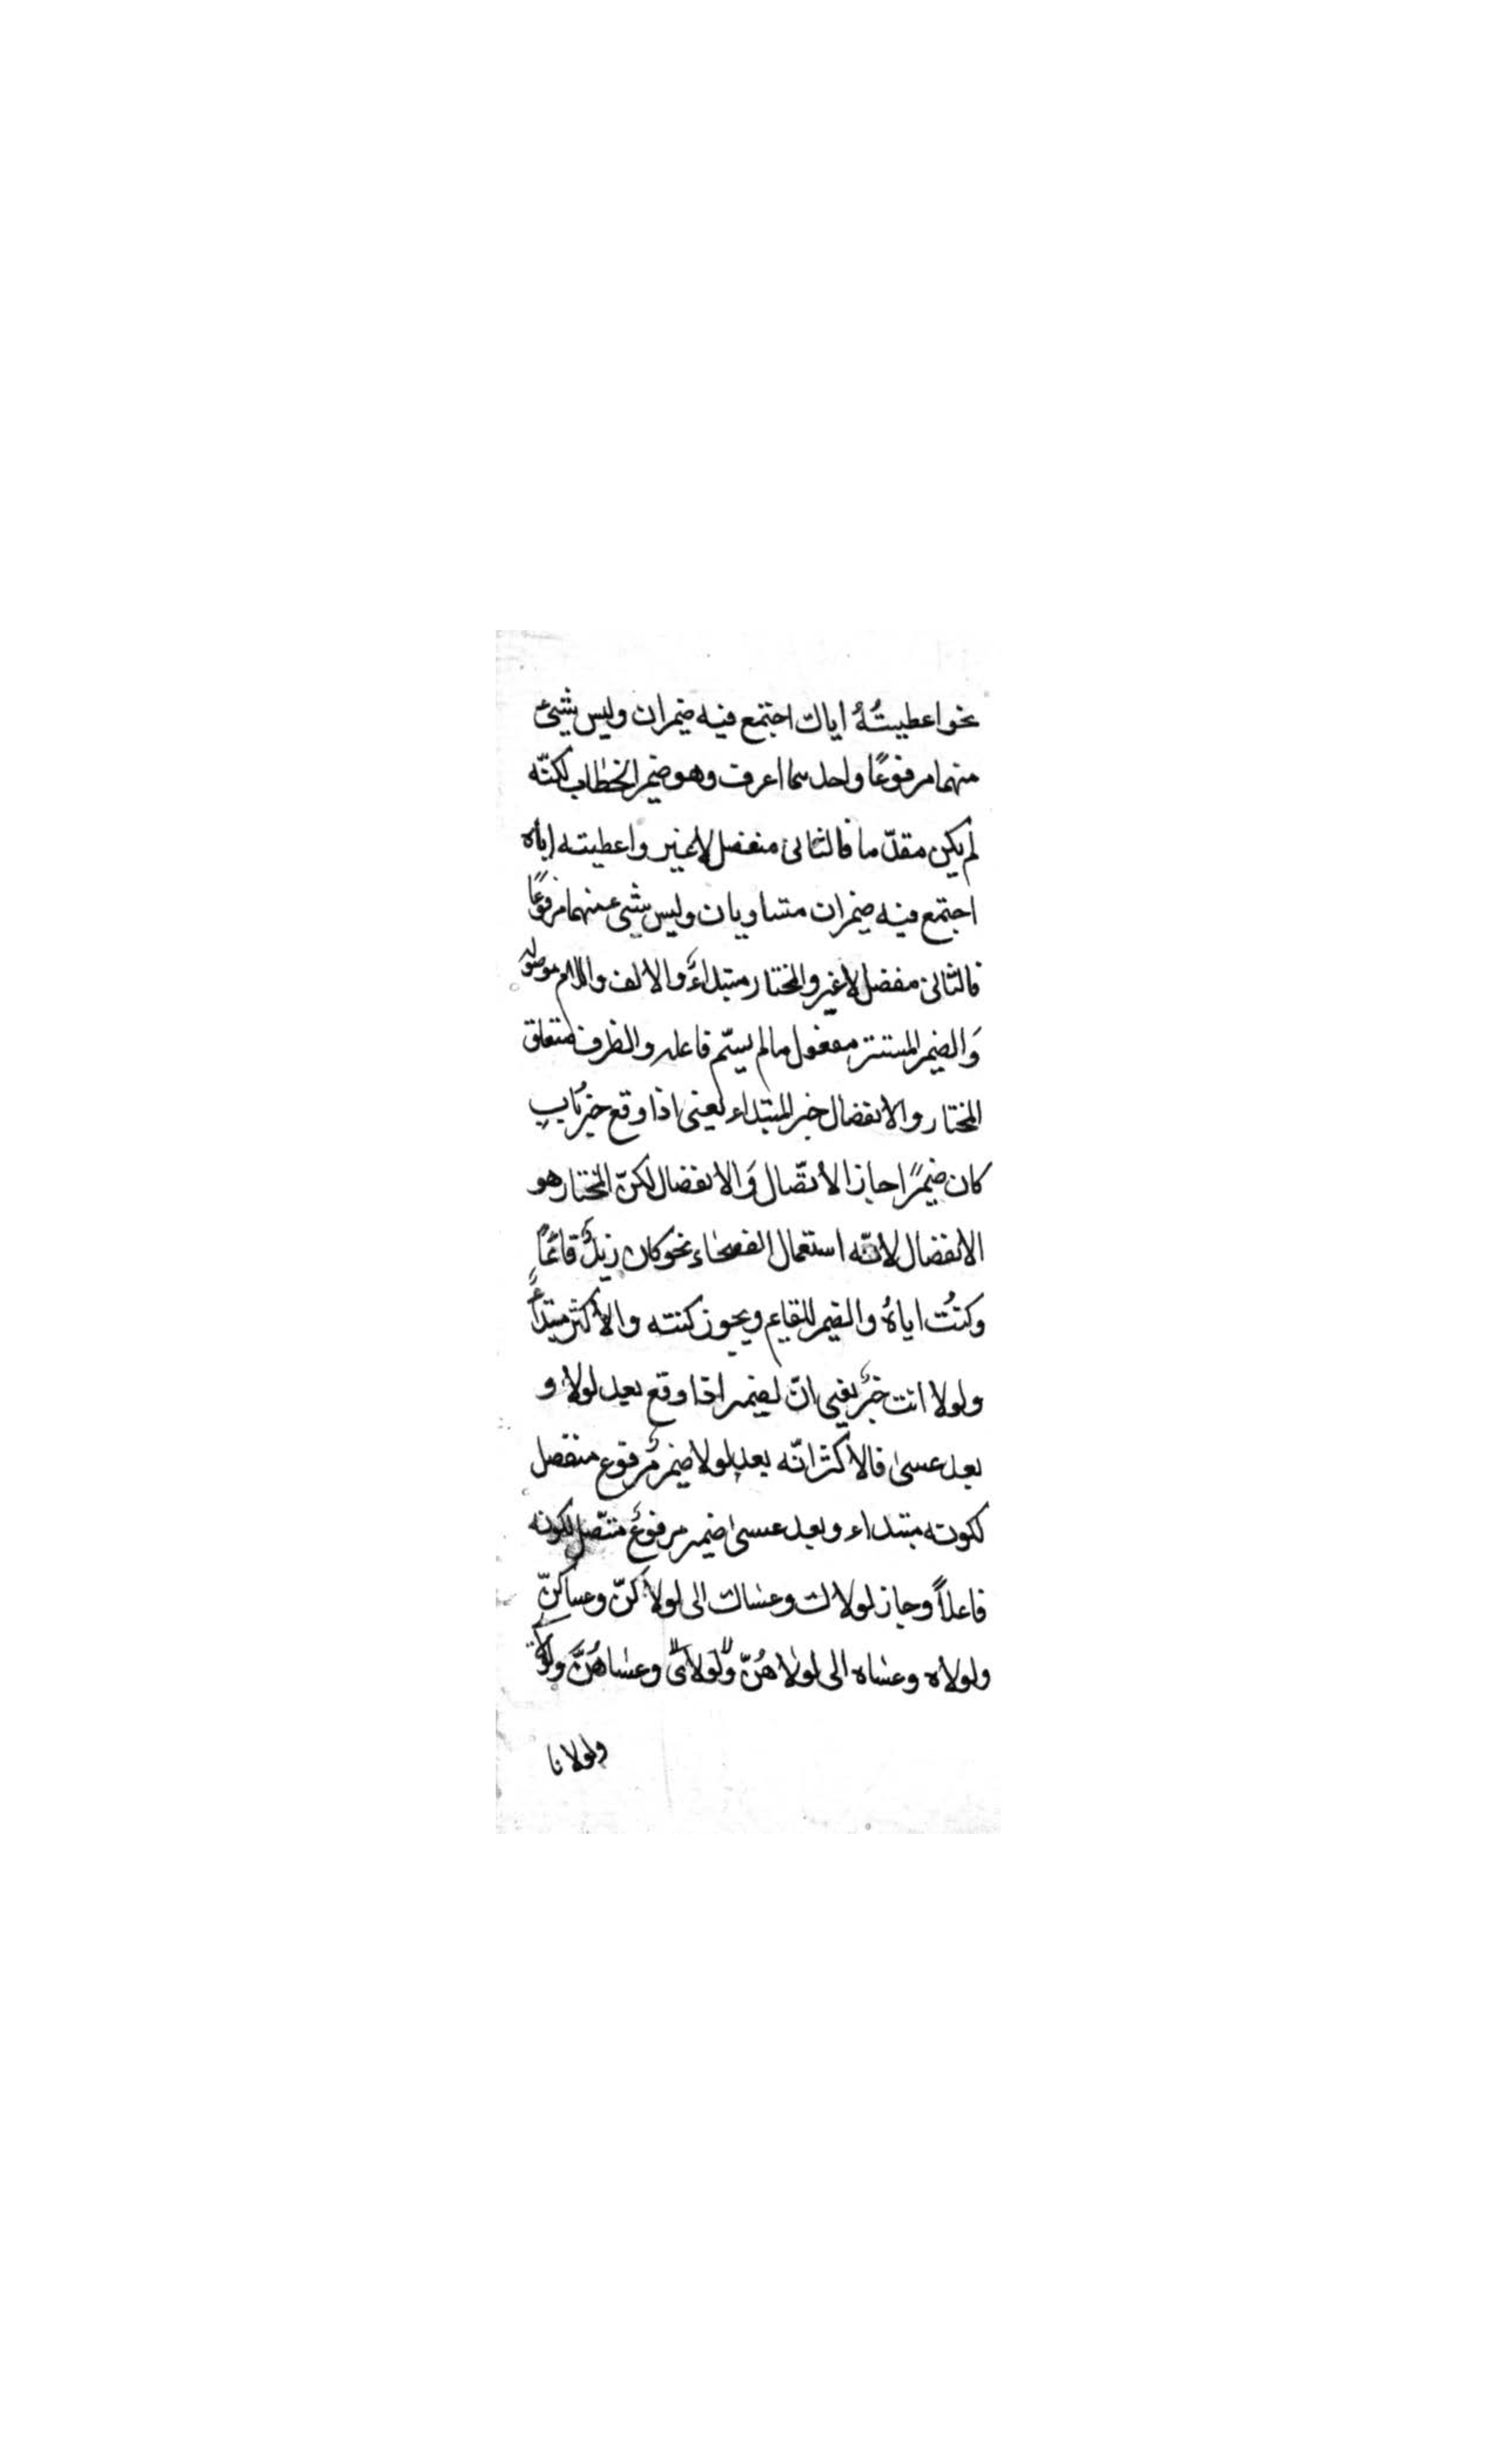 نحو اعطيتُهُ اياك اجتمع فيه ضمير ان وليس شيئ
منهما مرفوعًا واحدهما اعرف وهو ضمير الخطاب لكنّه
لم يكن مقدّما فالثانى منفصل لا غير واعطيته اياه
اجتمع فيه ضميران متساويان وليس شيئ منهما مرفوعًا
فالثانى منفصل لا غير والمختار مبتداءٌ والالف واللام موصولة
وَالضمير المستتر مفعول مالم يسمّ فاعله والظرف متعلق
المختار والانفصال خبر المبتداء يعنى اذا وقع خبرُ باب
كان ضميرًا جاز الاتّصال وَالانفصال لكنّ المختار هو
الانفصال لانّه استعمال الفصحاء نحو كان زيدٌ قائمًا
وكنتُ اياهُ والضمير للقايم ويجوز كنته والاكثر مبتداءٌ
ولولا انت خبرٌ يعنى انّ لضمير اذا وقع بعد لولا و
بعد عسىٰ فالاكثر انّه بعد لولا ضميرٌ مرفوع منفصل
لكونه مبتداء وبعد عسىٰ ضمير مرفوعٌ متّصل لكونه
فاعلاً وجاز لولاك وعساك الى لولاكنّ وعساكنّ
ولولاه وعساه الى لولاهُنّ ولولاىَ وعساهُنَّ
ولولانا